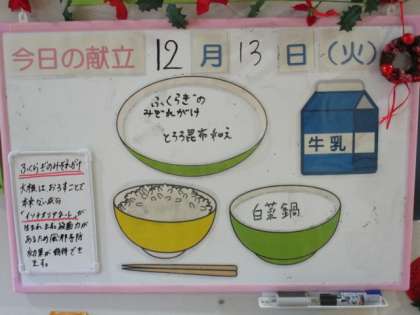 今日の献立 12月13日(火)
ふくらぎの
みぞれがけ
とろろ昆布和え
牛乳
白菜鍋
ふくらぎのみぞれがけ
大根は おろすことで
本来ない成分
「イソチオシアネート」が
生まれます。殺菌力が
あるため風邪予防
効果が期待でき
ます。